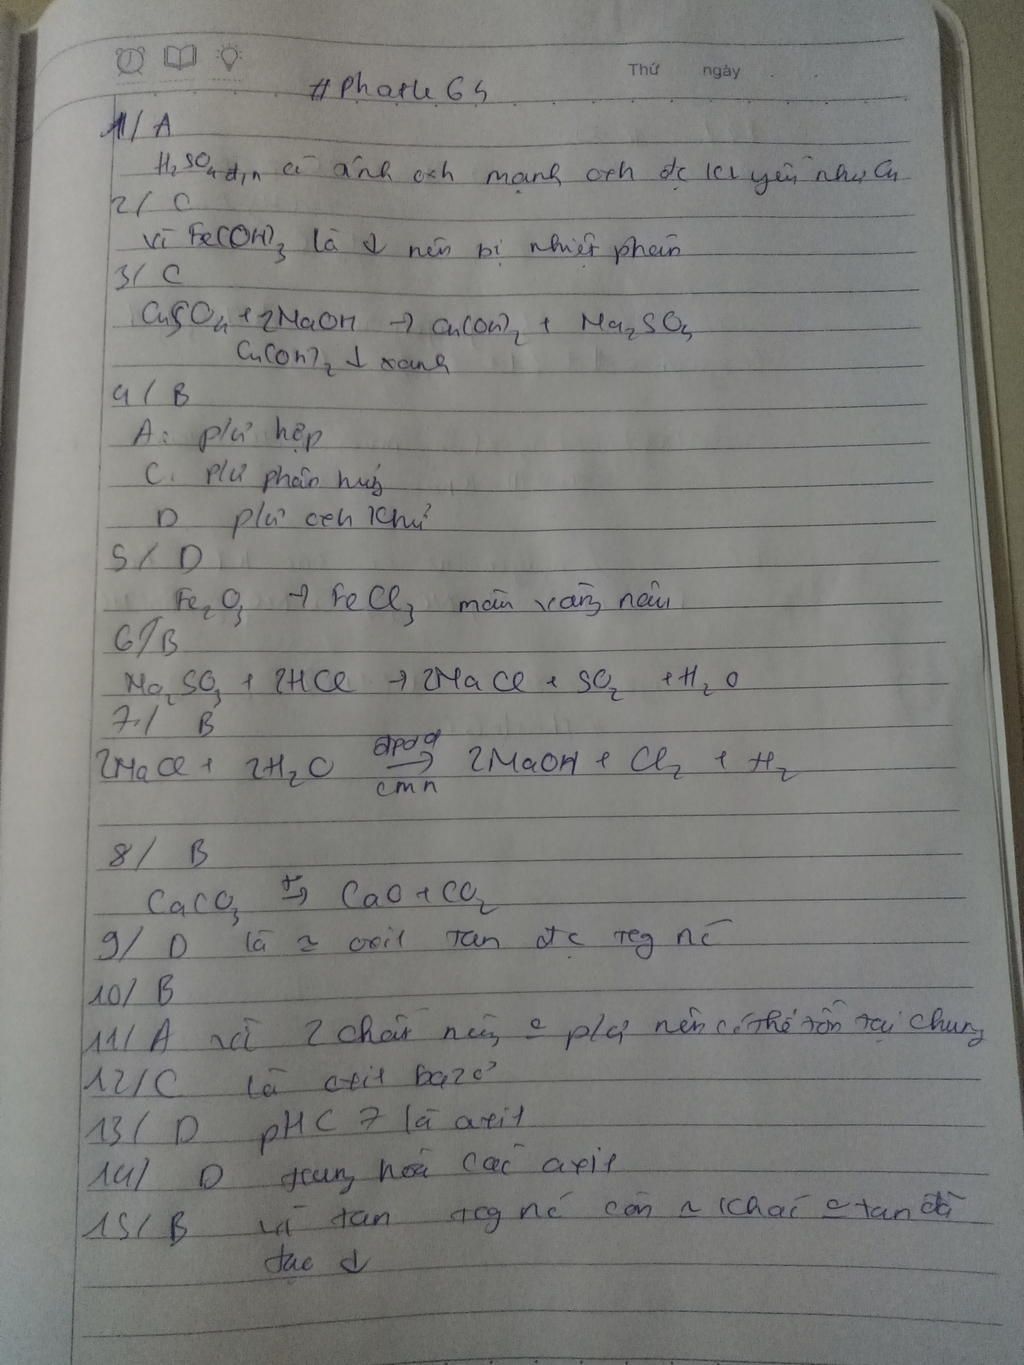 Thứ ngày
#Pharle G4
1/ A
H₂SO₄ đ,n có tính oxh mạnh oxh đc KL yếu như Cu
2/ C
vì Fe(OH)₃ là ↓ nên bị nhiệt phân
3/ C
CuSO₄ + 2NaOH → Cu(OH)₂ + Na₂SO₄
Cu(OH)₂ ↓ xanh
4/ B
A: p/ứ hợp
C. p/ứ phân huỷ
D p/ứ oxh khử
5/ D
Fe₂O₃ → FeCl₃ màu vàng nâu
6/ B
Na₂SO₃ + 2HCl → 2NaCl + SO₂ + H₂O
7/ B
2NaCl + 2H₂O đpdd→cmn 2NaOH + Cl₂ + H₂
8/ B
CaCO₃ t°→ CaO + CO₂
9/ D là ~ oxit tan đc trg nc
10/ B
11/ A vì 2 chất này p/ứ nên có thể tồn tại chung
12/ C là oxit bazơ
13/ D pH < 7 là axit
14/ D trung hoà các axit
15/ B vì tan trg nc còn ~ khác tan
tạo ↓